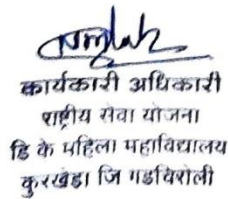 कार्यकारी अधिकारी
राष्ट्रीय सेवा योजना
डि के महिला महाविद्यालय
कुरखेडा जि गडचिरोली